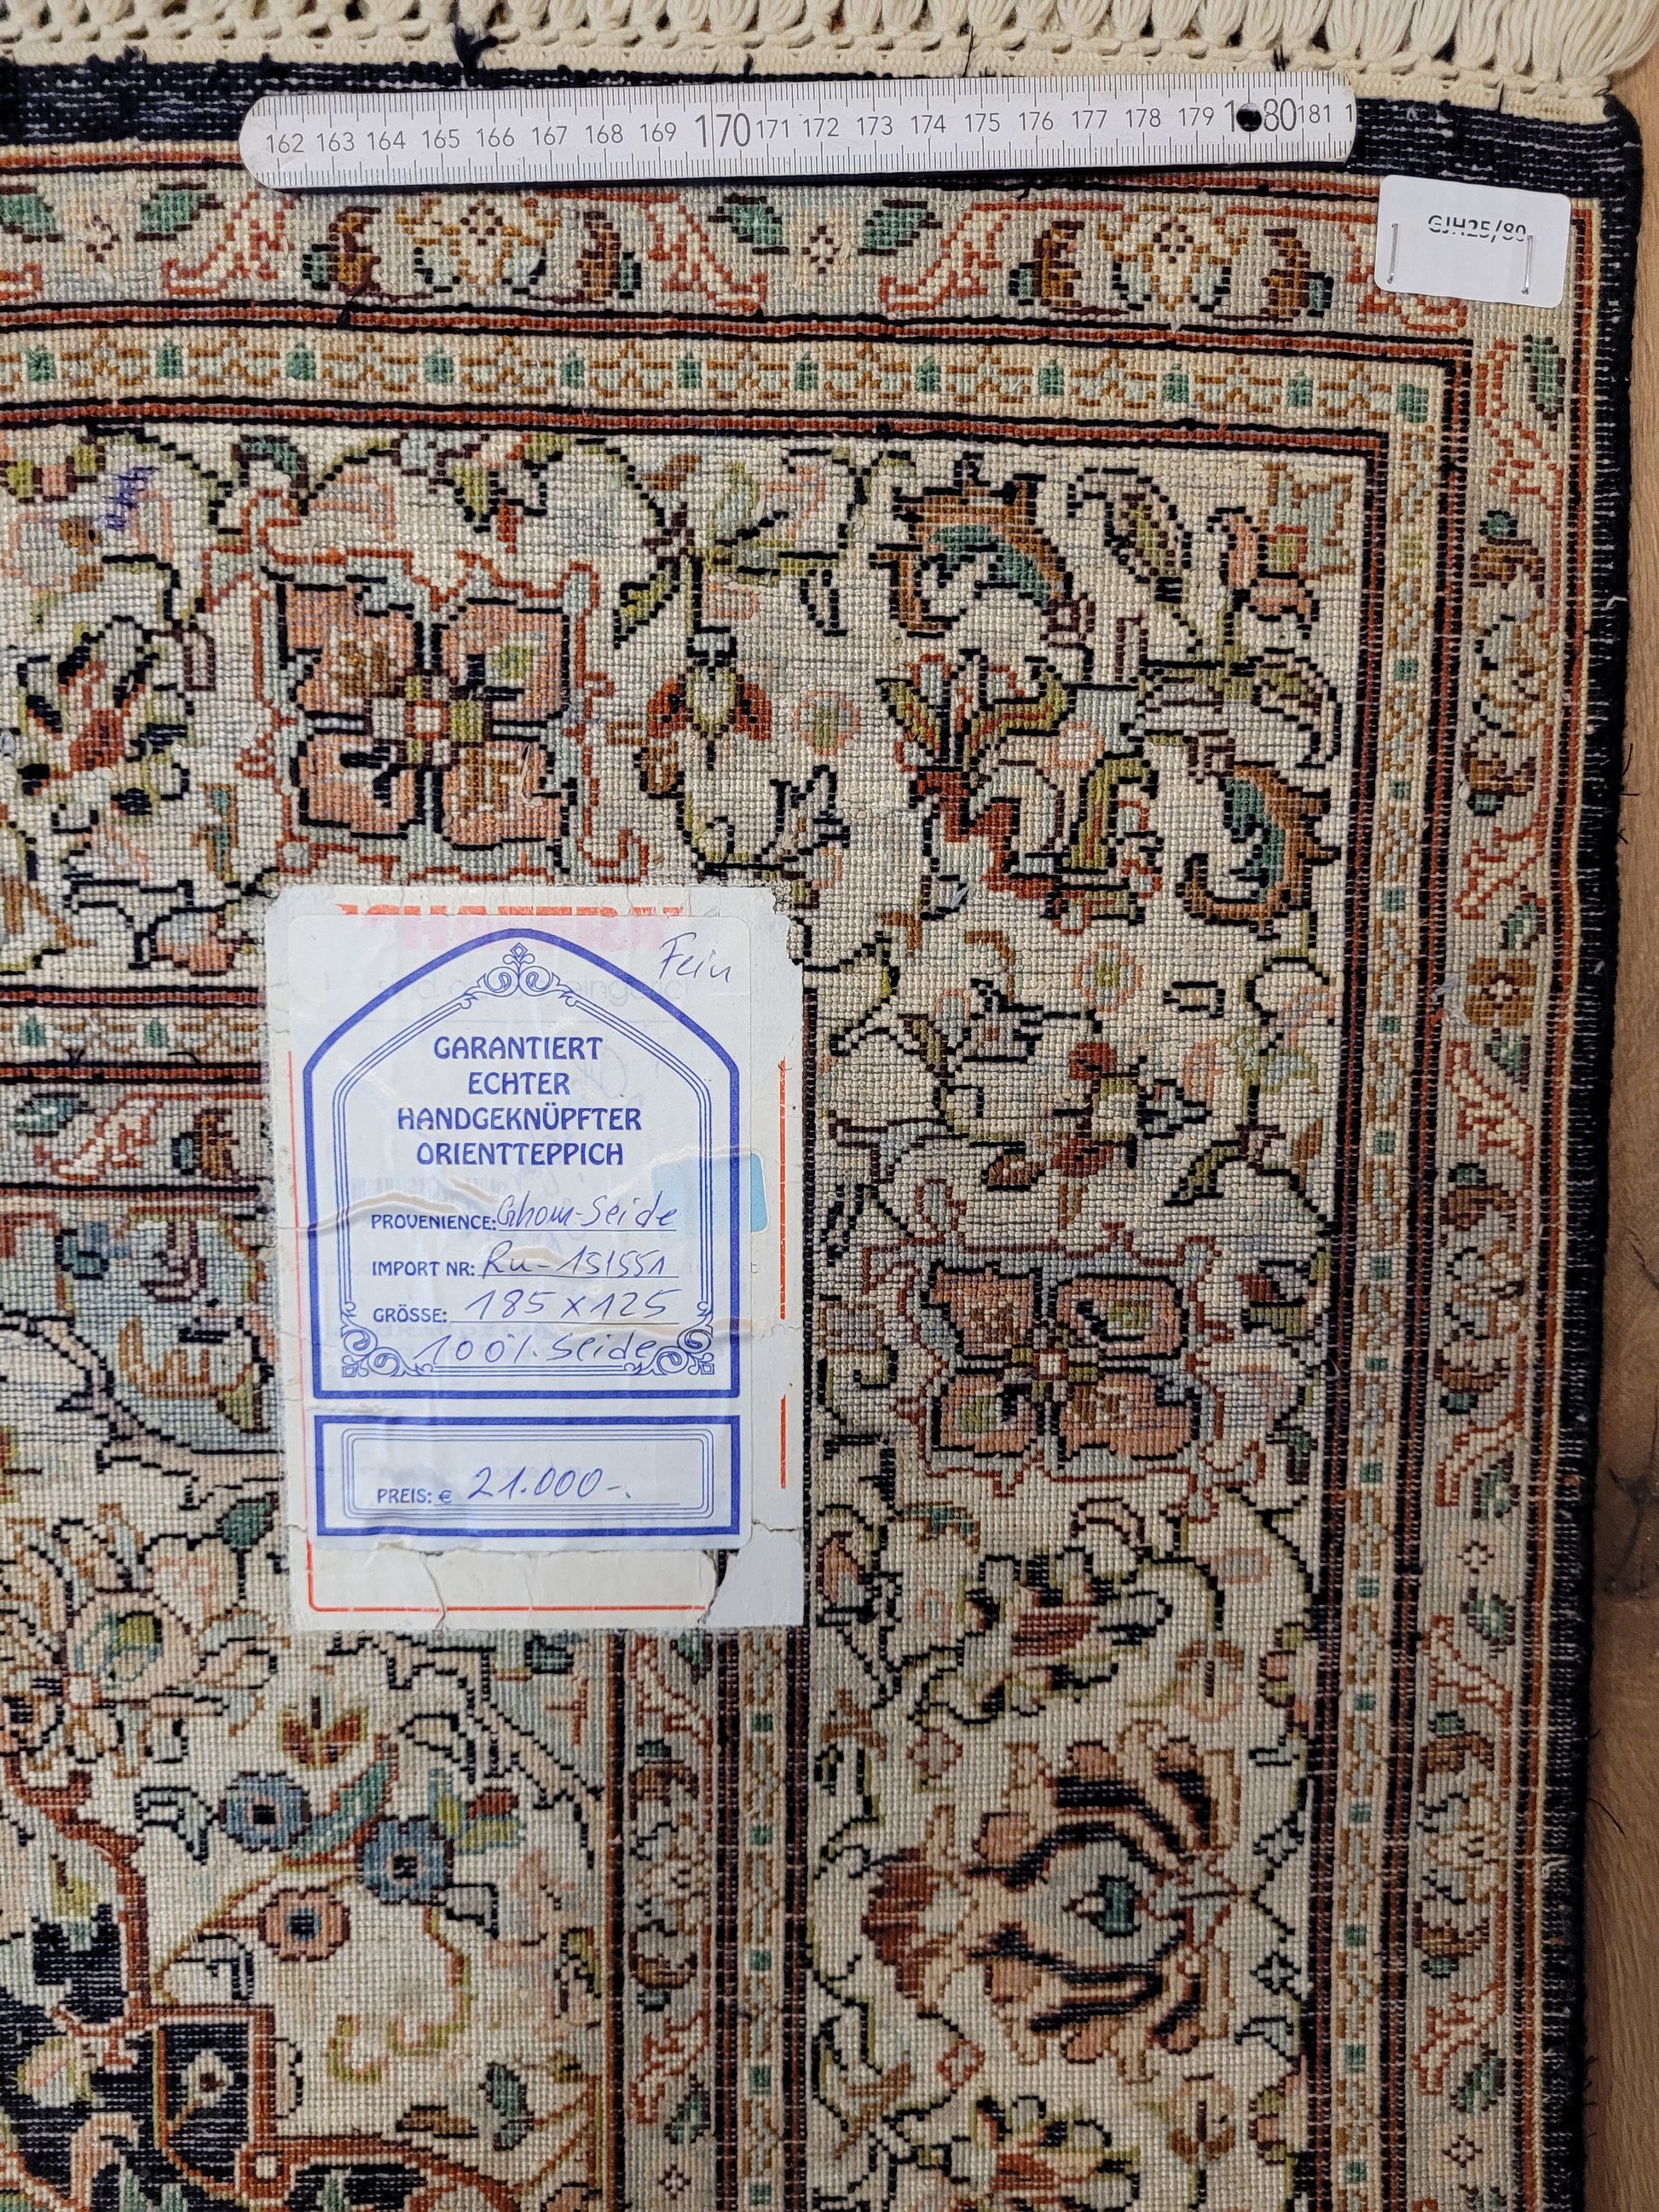 162 163 164 165 166 167 168 169 170 171 172 173 174 175 176 177 178 179 180 181 1
GJH25/80
Fein
GARANTIERT
ECHTER
HANDGEKNÜPFTER
ORIENTTEPPICH
PROVENIENCE: Ghom-Seide
IMPORT NR: Ru-151551
GRÖSSE: 185 x 125
100% Seide
PREIS: € 21.000-.